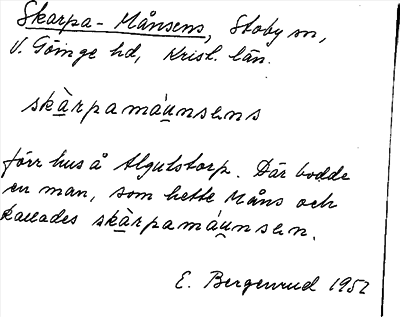 Skarpa-Månsens, Stoby sn,
V. Göinge hd, Krisl. län.
skàrpamáunsens
förr hus å Algustorp. Där bodde
en man, som hette Måns och
kallades skàrpamáunsen.
E. Bergenrud 1952